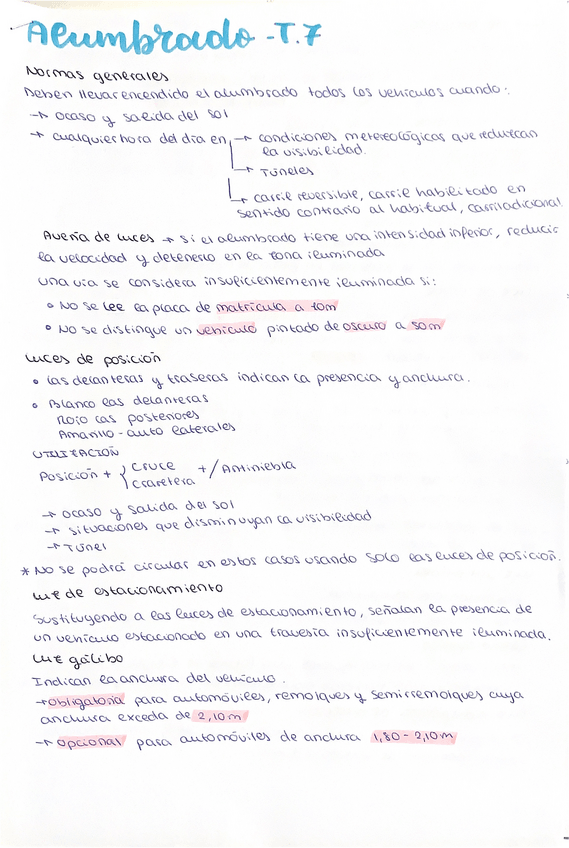 Alumbrado - T.7
Normas generales
Deben llevar encendido el alumbrado todos los vehículos cuando:
→ ocaso y salida del sol
→ cualquier hora del día en → condiciones metereológicas que reduzcan
la visibilidad.
→ Túneles
→ carril reversible, carril habilitado en
sentido contrario al habitual, carril adicional.
Avería de luces → Si el alumbrado tiene una intensidad inferior, reducir
la velocidad y detenerlo en la zona iluminada
una vía se considera insuficientemente iluminada si:
• No se lee la placa de matrícula a 10m
• No se distingue un vehículo pintado de oscuro a 50m
Luces de posición
• las delanteras y traseras indican la presencia y anchura.
• Blanco las delanteras
Rojo las posteriores
Amarillo - auto laterales
UTILIZACIÓN
Posición + { Cruce + / Antiniebla
Ccarretera
→ ocaso y salida del sol
→ situaciones que disminuyan la visibilidad
→ Túnel
* No se podrá circular en estos casos usando solo las luces de posición.
Luz de estacionamiento
Sustituyendo a las luces de estacionamiento, señalan la presencia de
un vehículo estacionado en una travesía insuficientemente iluminada.
Luz gálibo
Indican la anchura del vehículo.
→ obligatoria para automóviles, remolques y semirremolques cuya
anchura exceda de 2,10m
→ opcional para automóviles de anchura 1,80 - 2,10m